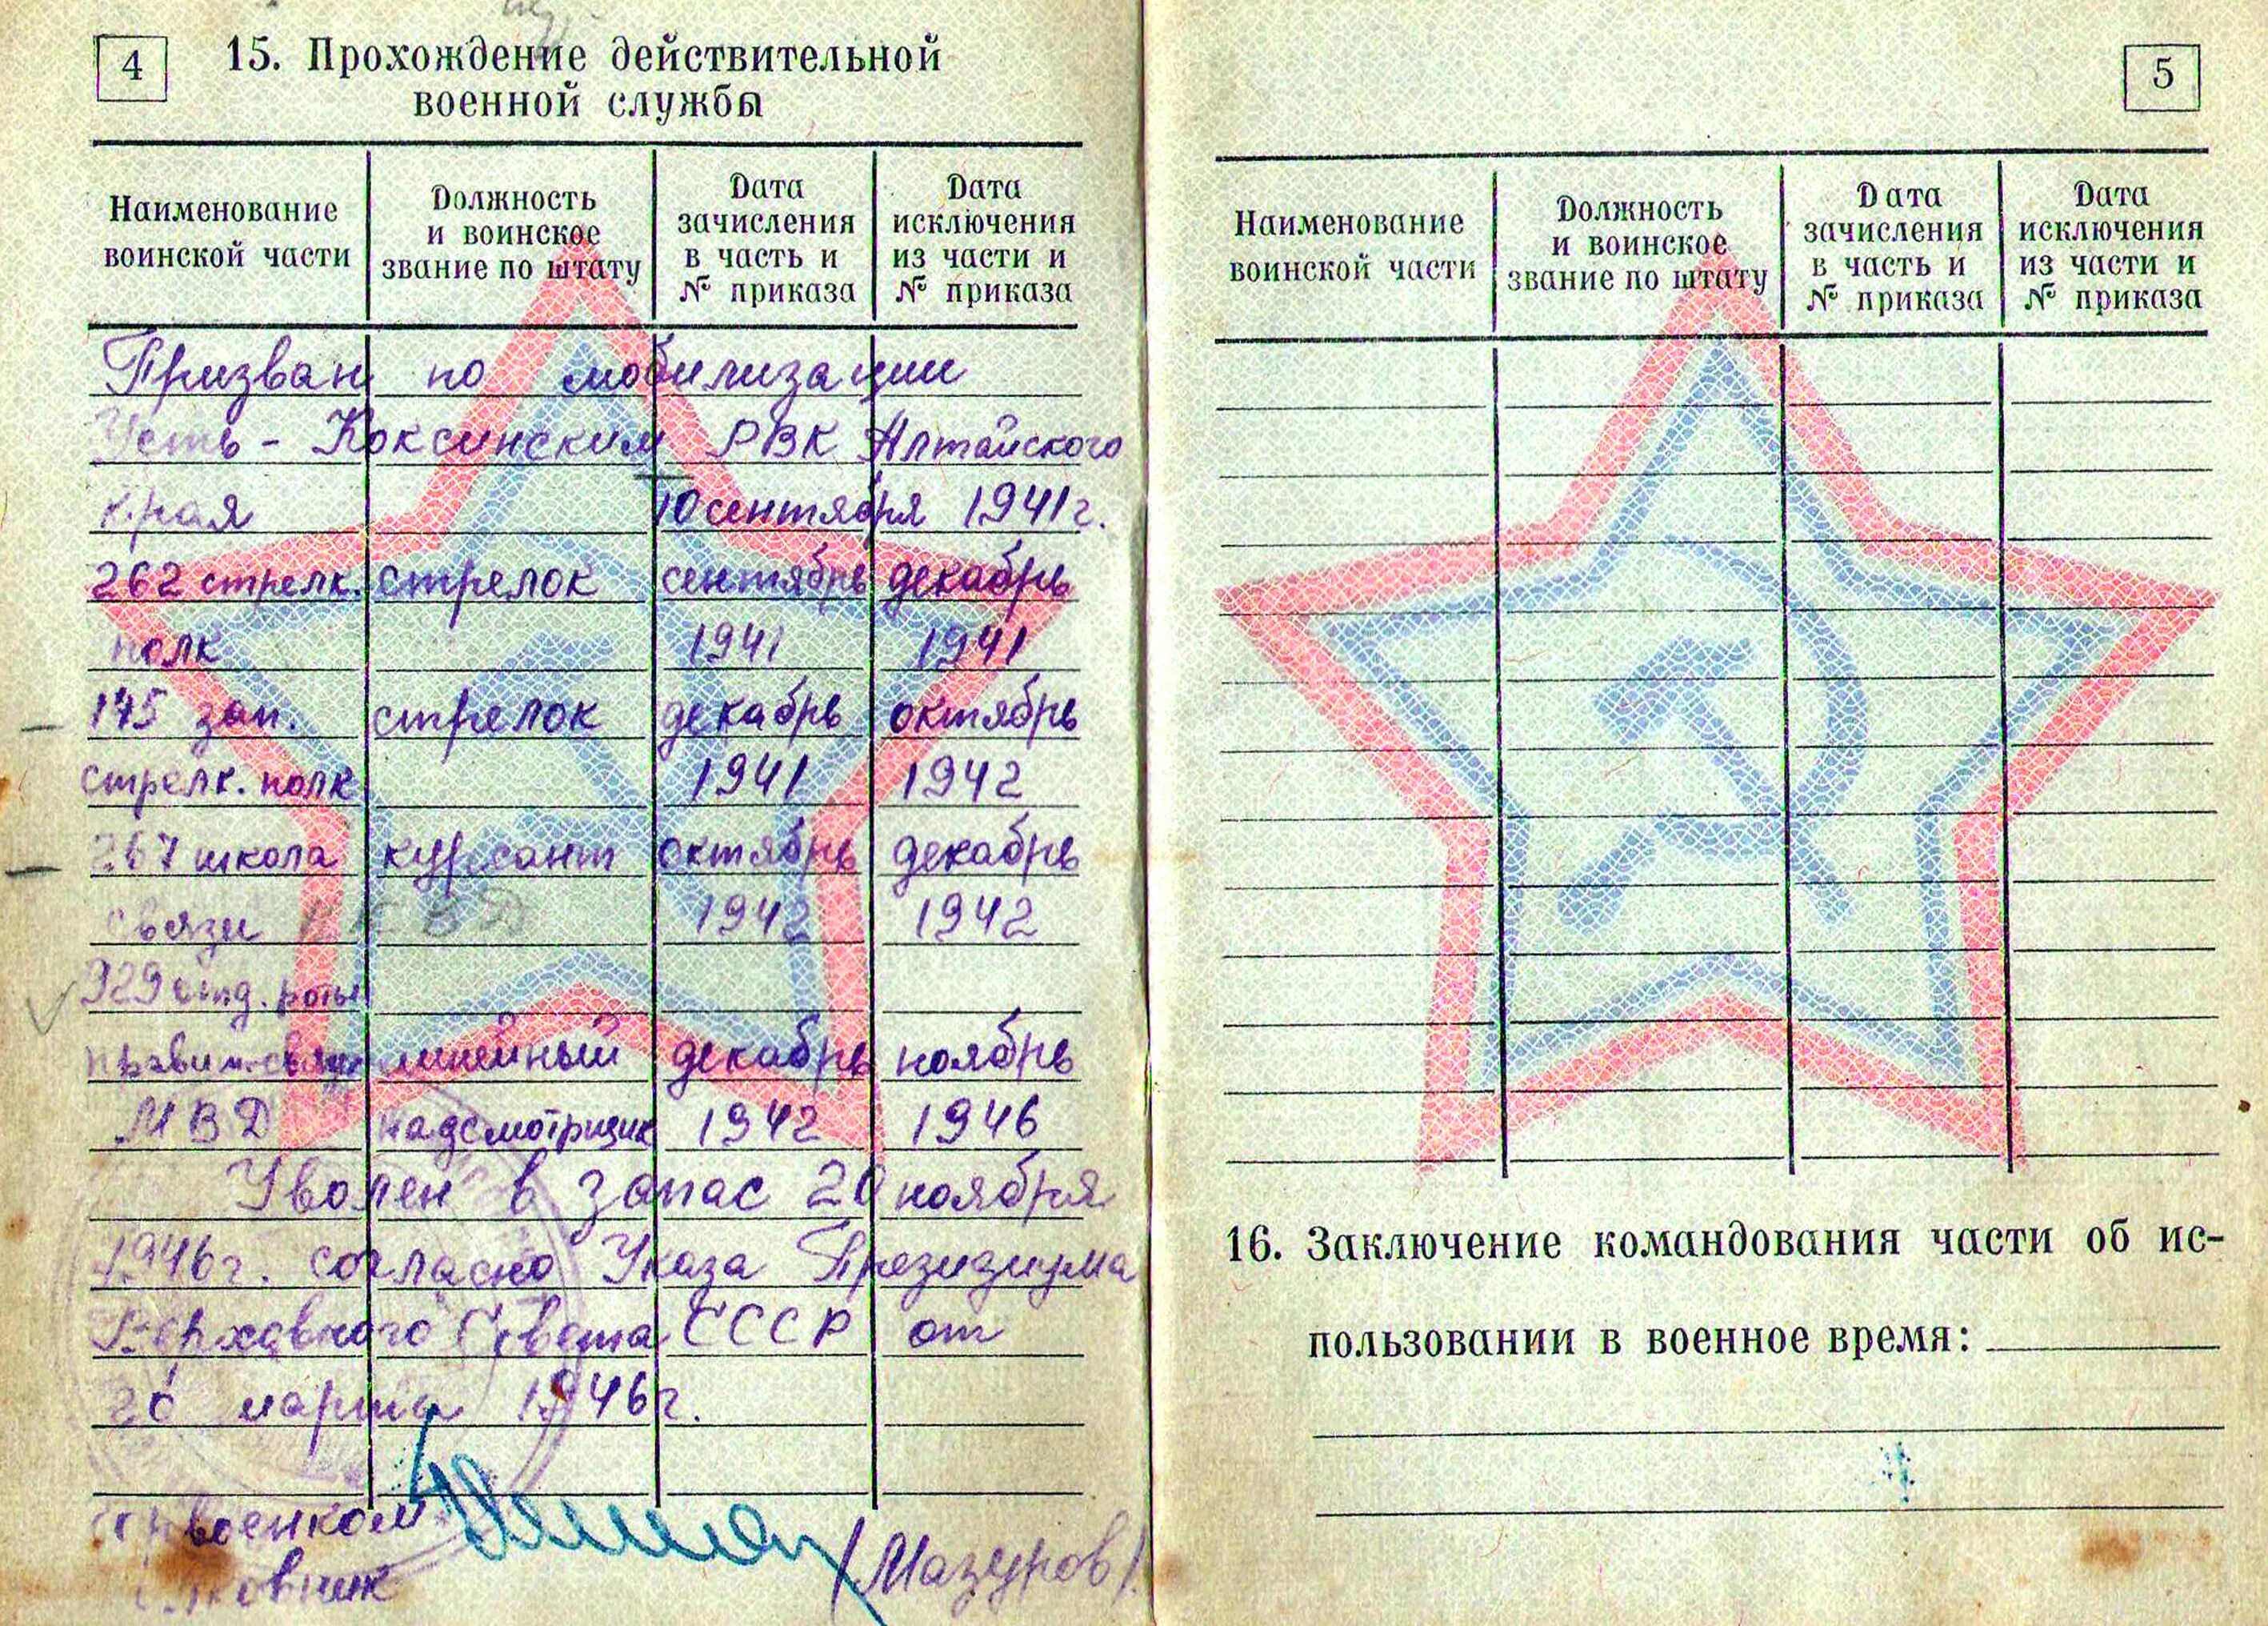 4
15. Прохождение действительной
военной службы
Наименование
воинской части
Должность
и воинское
звание по штату
Дата
зачисления
в часть и
№ приказа
Дата
исключения
из части и
№ приказа
Призван по мобилизации
Усть - Коксинским РВК Алтайского
края 10 сентября 1941г.
262 стрелк. стрелок сентябрь декабрь
полк 1941 1941
145 зап. стрелок декабрь октябрь
стрелк. полк 1941 1942
267 школа курсант октябрь декабрь
связи НКВД 1942 1942
929 отд. роты
правит. связи линейный декабрь ноябрь
МВД надсмотрщик 1942 1946
Уволен в запас 20 ноября
1946г. согласно Указа Президиума
Верховного Совета СССР от
20 марта 1946г.
военком
(Мазуров).
5
Наименование
воинской части
Должность
и воинское
звание по штату
Дата
зачисления
в часть и
№ приказа
Дата
исключения
из части и
№ приказа
16. Заключение командования части об ис-
пользовании в военное время: